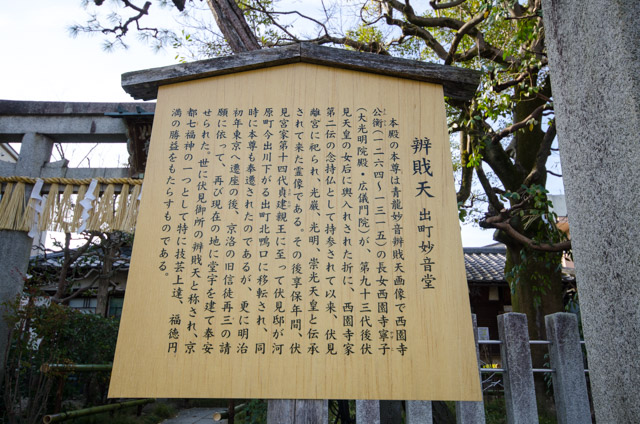 辨賎天 出町妙音堂
本殿の本尊は青龍妙音辨賎天画像で西園寺
公衡(一二六四~一三一五)の長女西園寺寧子
(大光明院殿・広儀門院)が、第九十三代後伏
見天皇の女后に輿入れされた折に、西園寺家
第二伝の念持仏として持参されて以来、伏見
離宮に祀られ、光厳、光明、崇光天皇と伝承
されて来た霊像である。その後享保年間、伏
見宮家第十四代貞建親王に至って伏見邸が河
原町今出川下がる出町北鴨口に移転され、同
時に本尊も奉遷されたのであるが、更に明治
初年東京へ遷座の後、京洛の旧信徒再三の請
願に依って、再び現在の地に堂宇を建て奉安
せられた。世に伏見御所の辨賎天と称され、京
都七福神の一つとして特に技芸上達、福徳円
満の勝益をもたらすものである。